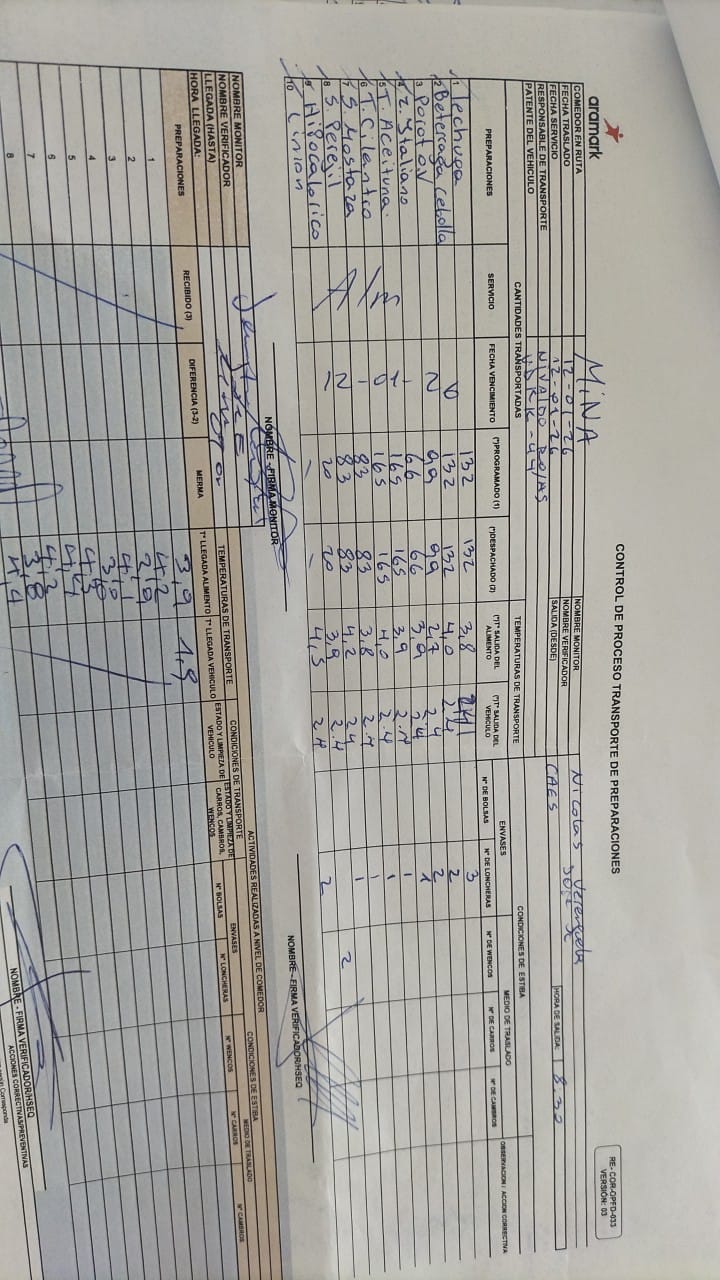 aramark
CONTROL DE PROCESO TRANSPORTE DE PREPARACIONES
RE- COR-OPFD-033
VERSIÓN: 03
COMEDOR EN RUTA MINA NOMBRE MONITOR Nicolas
FECHA TRASLADO 12-01-26 NOMBRE VERIFICADOR
FECHA SERVICIO 12-01-26 SALIDA (DESDE) CAES HORA DE SALIDA: 8:30
RESPONSABLE DE TRANSPORTE NIVALDO ROJAS
PATENTE DEL VEHICULO
CANTIDADES TRANSPORTADAS TEMPERATURAS DE TRANSPORTE CONDICIONES DE ESTIBA
ENVASES MEDIO DE TRASLADO
PREPARACIONES SERVICIO FECHA VENCIMIENTO (*)PROGRAMADO (1) (*)DESPACHADO (2) (*)T° SALIDA DEL ALIMENTO (*)T° SALIDA DEL VEHICULO N° DE BOLSAS N° DE LONCHERAS N° DE WENCOS N° DE CARROS N° DE CAMBROS OBSERVACION / ACCION CORRECTIVA
1 Lechuga 132 132 3,8 3
2 Beterraga cebolla 132 132 4,0 2.4 2
3 Poroto.V 99 99 2,7 2.4 2
4 Z. Italiano 66 66 3,9 2.4 1
5 T. Aceituna. 165 165 3,9 2.4 1
6 T. Cilantro 165 165 4,0 2.4 1
7 S. Mostaza 83 83 3,8 2.4 1
8 S. Perejil 83 83 4,2 2.4 1
9 Hipocalorico 20 20 3,9 2.4 2
10 Limon 4,5 2.4 2
A/m
NOMBRE - FIRMA MONITOR NOMBRE - FIRMA VERIFICADOR/HSEQ
NOMBRE MONITOR
NOMBRE VERIFICADOR
LLEGADA (HASTA)
HORA LLEGADA:
ACTIVIDADES REALIZADAS A NIVEL DE COMEDOR
TEMPERATURAS DE TRANSPORTE CONDICIONES DE TRANSPORTE CONDICIONES DE ESTIBA
ENVASES MEDIO DE TRASLADO
PREPARACIONES RECIBIDO (3) DIFERENCIA (3-2) MERMA T° LLEGADA ALIMENTO T° LLEGADA VEHICULO ESTADO Y LIMPIEZA DE VEHICULO ESTADO Y LIMPIEZA DE CARROS, CAMBROS, WENCOS N° BOLSAS N° LONCHERAS N° WENCOS N° CARROS N° CAMBROS
1 3,9 1,8
2 4,2
3 2,9
4 4,1
5 3,0
6
7
8
4,3
3,8
4,4
NOMBRE - FIRMA VERIFICADOR/HSEQ
ACCIONES CORRECTIVAS/PREVENTIVAS